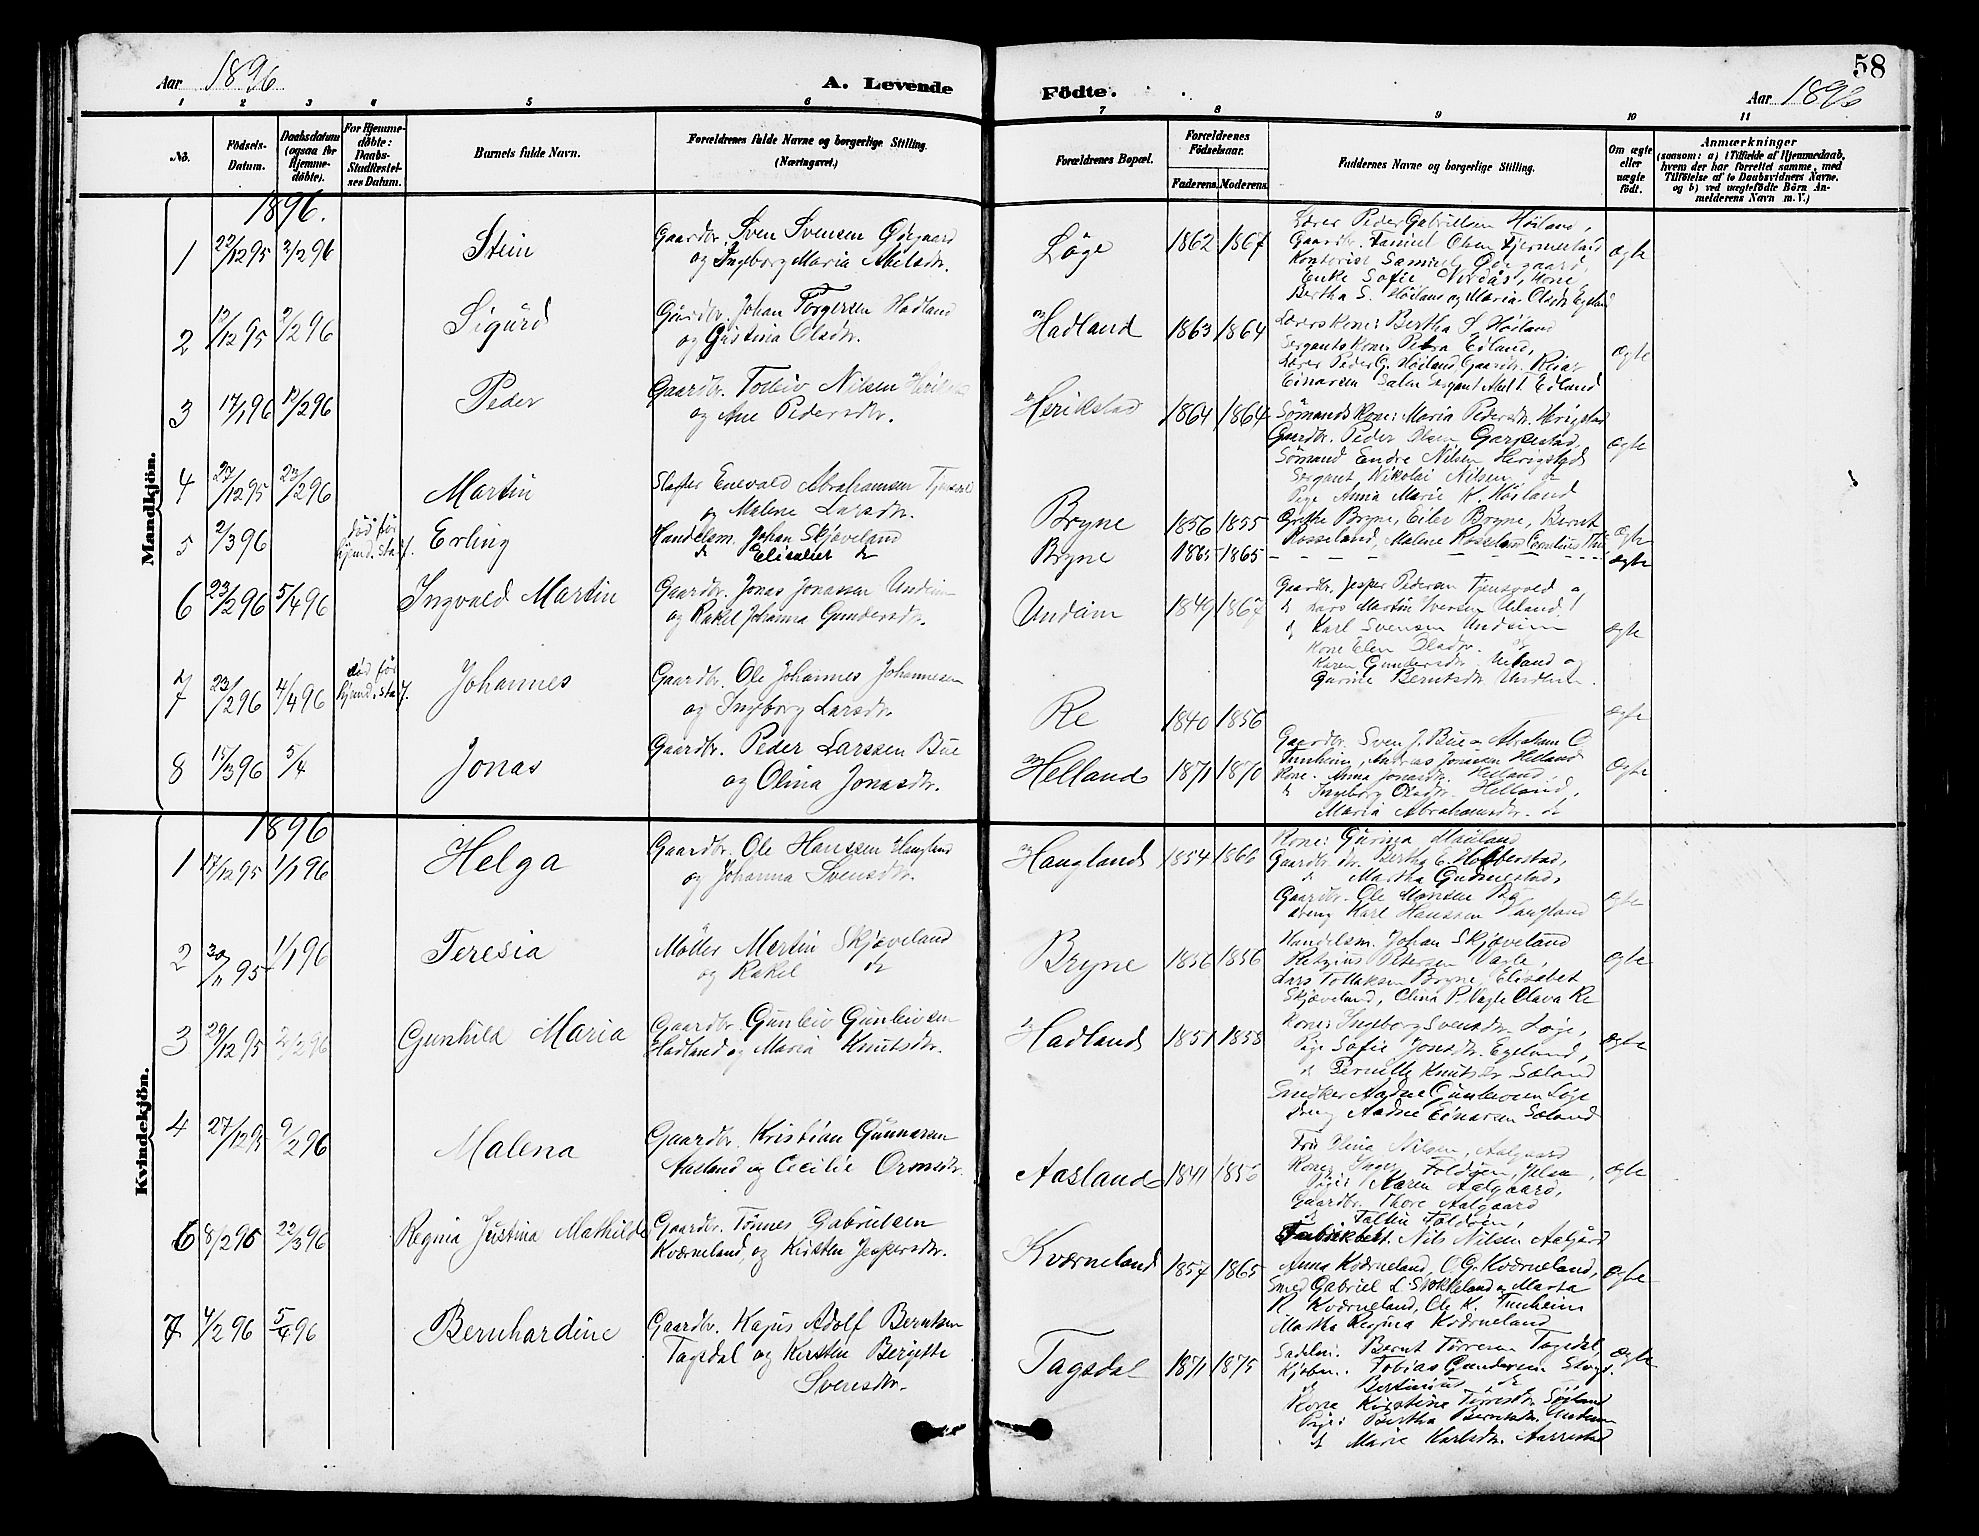 58
Aar 1896
A. Levende
Födte.
Aar 1896
1 2 3 4 5 6 7 8 9 10 11
No.
Födsels-Datum.
Daabsdatum (ogsaa for Hjemme-döbte).
For Hjemme-döbte: Daabs-Stadfæstel-ses Datum.
Barnets fulde Navn.
Forældrenes fulde Navne og borgerlige Stilling. (Næringsvei.)
Forældrenes Bopæl.
Forældrenes Födselsaar.
Faderens. Moderens.
Faddernes Navne og borgerlige Stilling.
Om ægte eller uægte födt.
Anmærkninger
(saasom: a) i Tilfælde af Hjemmedaab,
hvem der har forrettet samme, med
Tilföielse af to Daabsvidners Navne.
og b) ved uægtefödte Börn An-
melderens Navn m. V.)
Mandkjön.
1896.
1 22/12 95 2/2 96 Stein
Gaardbr. Sven Svensen Ødegaard
og Ingeborg Maria Abelsdtr.
Løge 1862 1867
Lærer Peder Gabrielsen Höiland,
Gaardbr. Daniel Olsen Fjermestad
Kontorist Samuel Ødegaard,
Enke Sofie
Bertha S. Höiland og Maria Olsdtr. Egeland
ægte
2 12/12 95 2/2 96 Sigurd
Gaardbr. Johan Torgersen Hadland
og Gustina Olsdtr.
Hadland 1863 1864
Lærerskone: Bertha S. Höiland
Sergantskone: Petra Eiland,
Lærer Peder G. Höiland, Gaardbr. Reiar
Einarsen Salen Sergant Eiland
ægte
3 17/1 96 12/2 96 Peder
Gaardbr. Tosleiv Nilsen
og Ane Pedersdtr.
Herikstad 1864 1864
Sømandskone: Maria Pedersdtr. Herigstad
Gaardbr. Peder Olsen Garpestad,
Sømand Endre Nilsen Herigstad
Sergant Nikolai Nilsen do
Pige Anna Marie K. Höiland
ægte
4 27/12 95 23/2 96 Martin
Slagter Enevald Abrahamsen
og Malene Larsdtr.
Bryne 1856 1855
Grethe Bryne, Eiler Bryne, Bernt
Rosseland, Malene Rosseland
ægte
5 2/3 96 død før hjemd. staf. Erling
Handelsm. Johan Skjæveland
do Elisabet do
Bryne 1865 1865
ægte
6 23/2 96 5/4 96 Ingvald Martin
Gaardbr. Jonas Jonassen Undeim
og Rakel Johanna Gundersdtr.
Undeim 1849 1867
Gaardbr. Jesper Pedersen Tjensvold og
do Lars Martin Iversen Ueland
do Karl Svensen Undeim
Kone Elen Olsdtr. do
Karen Gundersdtr. Ueland og
Gurine Berntsdtr. Undheim.
ægte
7 23/2 96 4/4 96 død før hjemd. staf. Johannes
Gaardbr. Ole Johannes Johannesen
og Ingeborg Larsdtr.
Re 1840 1856
ægte
8 15/3 96 5/4 Jonas
Gaardbr. Peder Larssen Bue
og Olina Jonasdtr.
Helland 1871 1870
Gaardbr. Sven J. Bue og Abraham O
Tunheim, Andreas Jonasen Helland
Kone. Anna Jonasdtr. Helland
do Ingeborg Olsdtr. Helland,
Maria Abrahamsdtr. do
ægte
Kvindekjön.
1896
1 17/12 95 1/1 96 Helga
Gaardbr. Ole Hanssen Haugland
og Johanna Svensdtr.
Haugland 1854 1866
Kone: Gurina Mauland
Bertha E. Hobberstad,
do Martha Gudmestad,
Gaardbr. Ole Monsen
dreng Karl Hanssen Haugland
ægte
2 30/11 95 1/1 96 Teresia
Møller Martin Skjæveland
og Rakel do
Bryne 1856 1856
Handelsm. Johan Skjæveland
Petersen Vagle,
Lars Tollaksen Bryne, Elisabet
Skjæveland, Olina P. Vagle Olava Re
ægte
3 29/12 95 2/2 96 Gunhild Maria
Gaardbr. Gunleiv Gunleivsen
Hadland og Maria Knutsdtr.
Hadland 1851 1858
Kone: Ingeborg Svensdtr. Løge,
Pige Sofie Jonsdtr. Egeland,
do Pernille Knutsdtr Sæland
Snedker Aadne Gunleivsen Løge
dreng Aadne Einarsen Sæland
ægte
4 27/12 95 9/2 96 Malena
Gaardbr. Kristian Gunnarsen
Aasland og Cecilie Ormsdtr.
Aasland 1841 1856
Olina Nilsen, Aalgaard
Kone: Inger Foldøen,
Pige: Karen Aalgaard,
Gaardbr. Thore Aalgaard
do Foldøen,
Fabrikbest. Nils Nilsen Aalgård
ægte
6 8/2 96 22/3 96 Regina Justina Mathilde
Gaardbr. Tønnes Gabrielsen
Kværneland, og Kirsten Jespersdtr.
Kværneland 1857 1865
Anna Kværneland, O. G. Kværneland,
Smed Gabriel L. Stokkeland og Marta
R. Kværneland, Ole K. Tunheim
Martha Regina Kværneland
ægte
7 4/2 96 5/4 96 Bernhardine
Gaardbr. Kajus Adolf Berntsen
Tagsdal og Kirsten Bergitte
Svensdtr.
Tagsdal 1871 1875
Bernt Tørresen Tagsdal,
Kjøbm. Tobias Gundersen
do Bertinius do
Kone Kirstine Tørresdtr Söiland
Pige: Bertha Berntsdtr.
do Marie Karlsdtr. Aarrestad
ægte